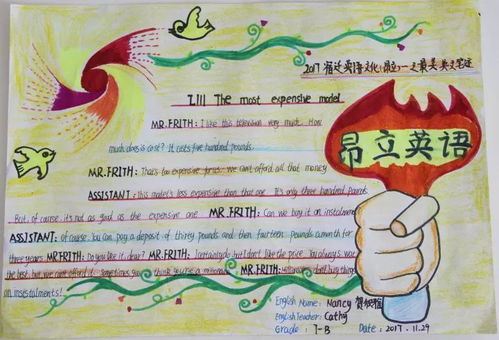 2017
I.111 The most expensive model
MR.FRITH: I like this television very much. How
much does is cost? It costs five hundred pounds.
MR.FRITH: That's too expensive for us. We can't afford all that money
ASSISTANT: This model's less expensive than that one. It's only three hundred pounds
But, of course, it's not as good as the expensive one MR.FRITH: Can we buy it on instalments
ASSISTANT: of course. You can pay a deposit of thirty pounds and then fourteen pounds a month for
three years MR.FRITH: Do you like it, dear? MR.FRITH: I certainly do, but I don't like the price. You always want
the best, but we can't afford it. Sometimes you think you're a millionaire MR.FRITH: buy things
on instalments!
昂立英语
English Name: Nancy
English Teacher: Cathy
Grade: 7-B Date: 2017.11.29